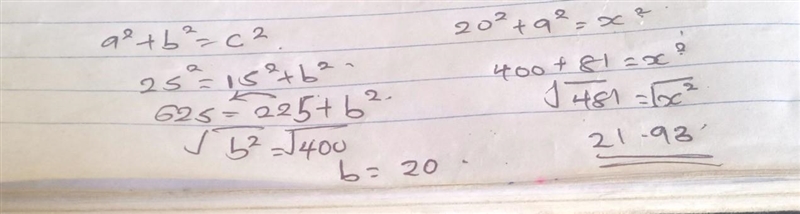 a² + b² = c²
25² = 15² + b²
625 = 225 + b²
√b² = √400
b = 20
20² + 9² = x²
400 + 81 = x²
√481 = √x²
21.93